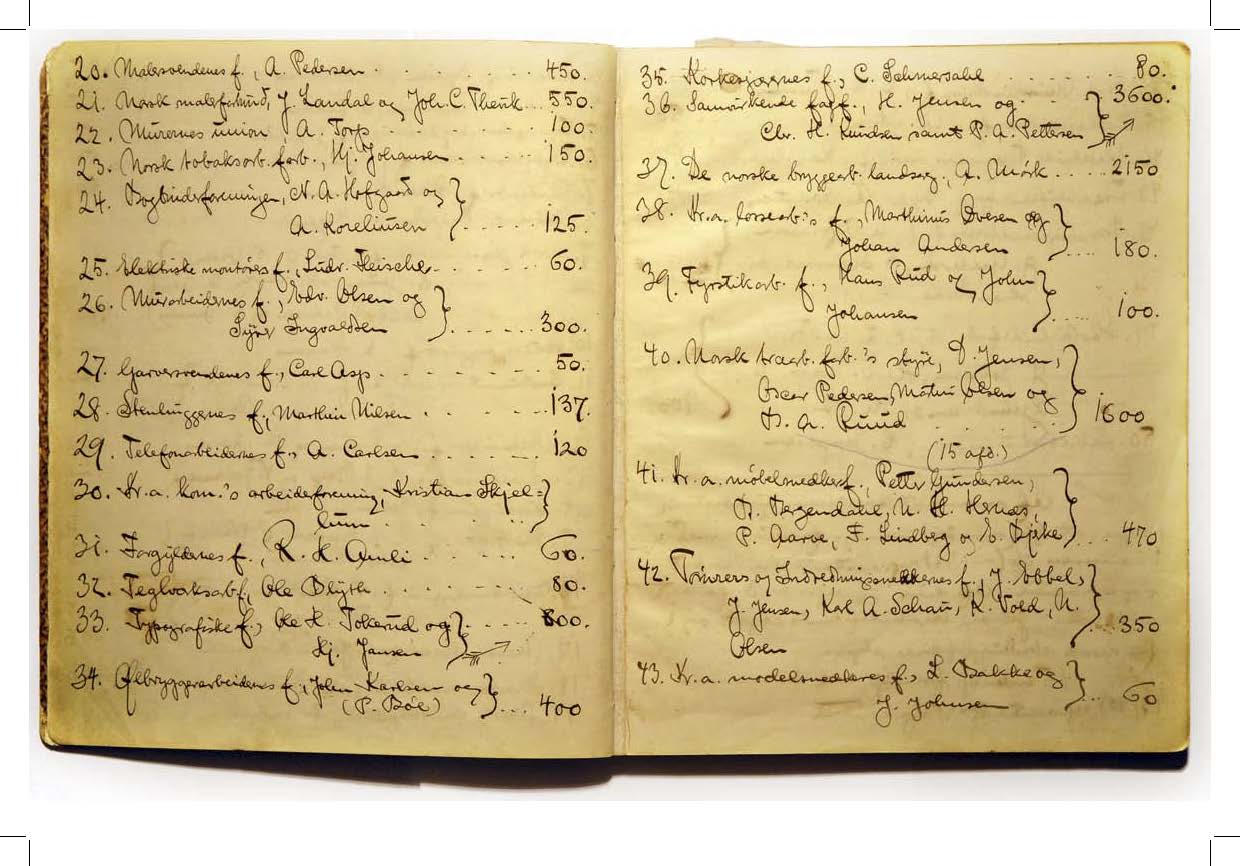 20. Malersvendenes f., A. Pedersen . . . . . . . 450.
21. Norsk malerforbund, J. Landal og Joh. C. Thenk... 550.
22. Murernes union A. Torp . . . . . . 100.
23. Norsk tobaksarb. forb., Hj. Johansen . . . . . 150.
24. Bogbinderforeningen, N. A. Hofgaard og
A. Koreliusen . . . . . 125.
25. Elektriske montørers f., Ludv. Fleischer . . . . . 60.
26. Murarbeidernes f., Edv. Olsen og
Syver Ingvaldsen . . . . . . 300.
27. Garversvendenes f., Carl Asp . . . . . . . 50.
28. Stenhuggernes f., Marthin Nilsen . . . . . . 137.
29. Telefonarbeidernes f., A. Carlsen . . . . . . 120
30. Kr.a. kom.'s arbeiderforening, Kristian Skjel=
lum . . . . .
31. Forgyldernes f., R. K. Amli . . . . . 60.
32. Teglverksarb.f., Ole Blyth . . . . . 80.
33. Typografiske f., Ole K. Tokerud og . . . . 800.
Hj. Jansen
34. Ølbryggerarbeidernes f., John Karlsen og
(P. Bøe) . . . 400
35. Korkeskjærernes f., C. Schmersahl . . . . . . . 80.
36. Samvirkende fagf., H. Jensen og . . 3600.
Chr. H. Knudsen samt P. A. Pettersen
37. De norske bryggearb. landsorg., A. Mørk . . . . 2150
38. Kr.a. lossearb.'s f., Marthinus Ovesen og
Johan Andersen . . . . 180.
39. Fyrstikarb. f., Hans Rud og John
Johansen . . . . . 100.
40. Norsk træarb. forb.'s styre, D. Jensen,
Oscar Pedersen, Matin Olsen og
H. A. Ruud . . . . . . 1600
(15 afd.)
41. Kr.a. møbelsnedkerf., Petter Gundersen,
H. Bergendahl, N. H. Hernæs,
P. Aarve, F. Lindberg og E. . . 470
42. Tømrers og Indredningssnedkernes f., J. Ebbel,
J. Jensen, Karl A. Schau, K. Vold, N.
Olsen . . . 350
43. Kr.a. modelsnedkeres f., L. Bakke og
J. Johnsen . . . 60